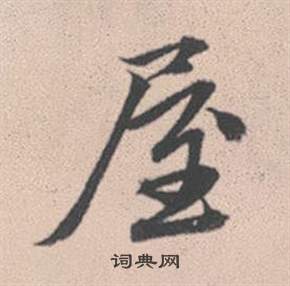 屋
词典网